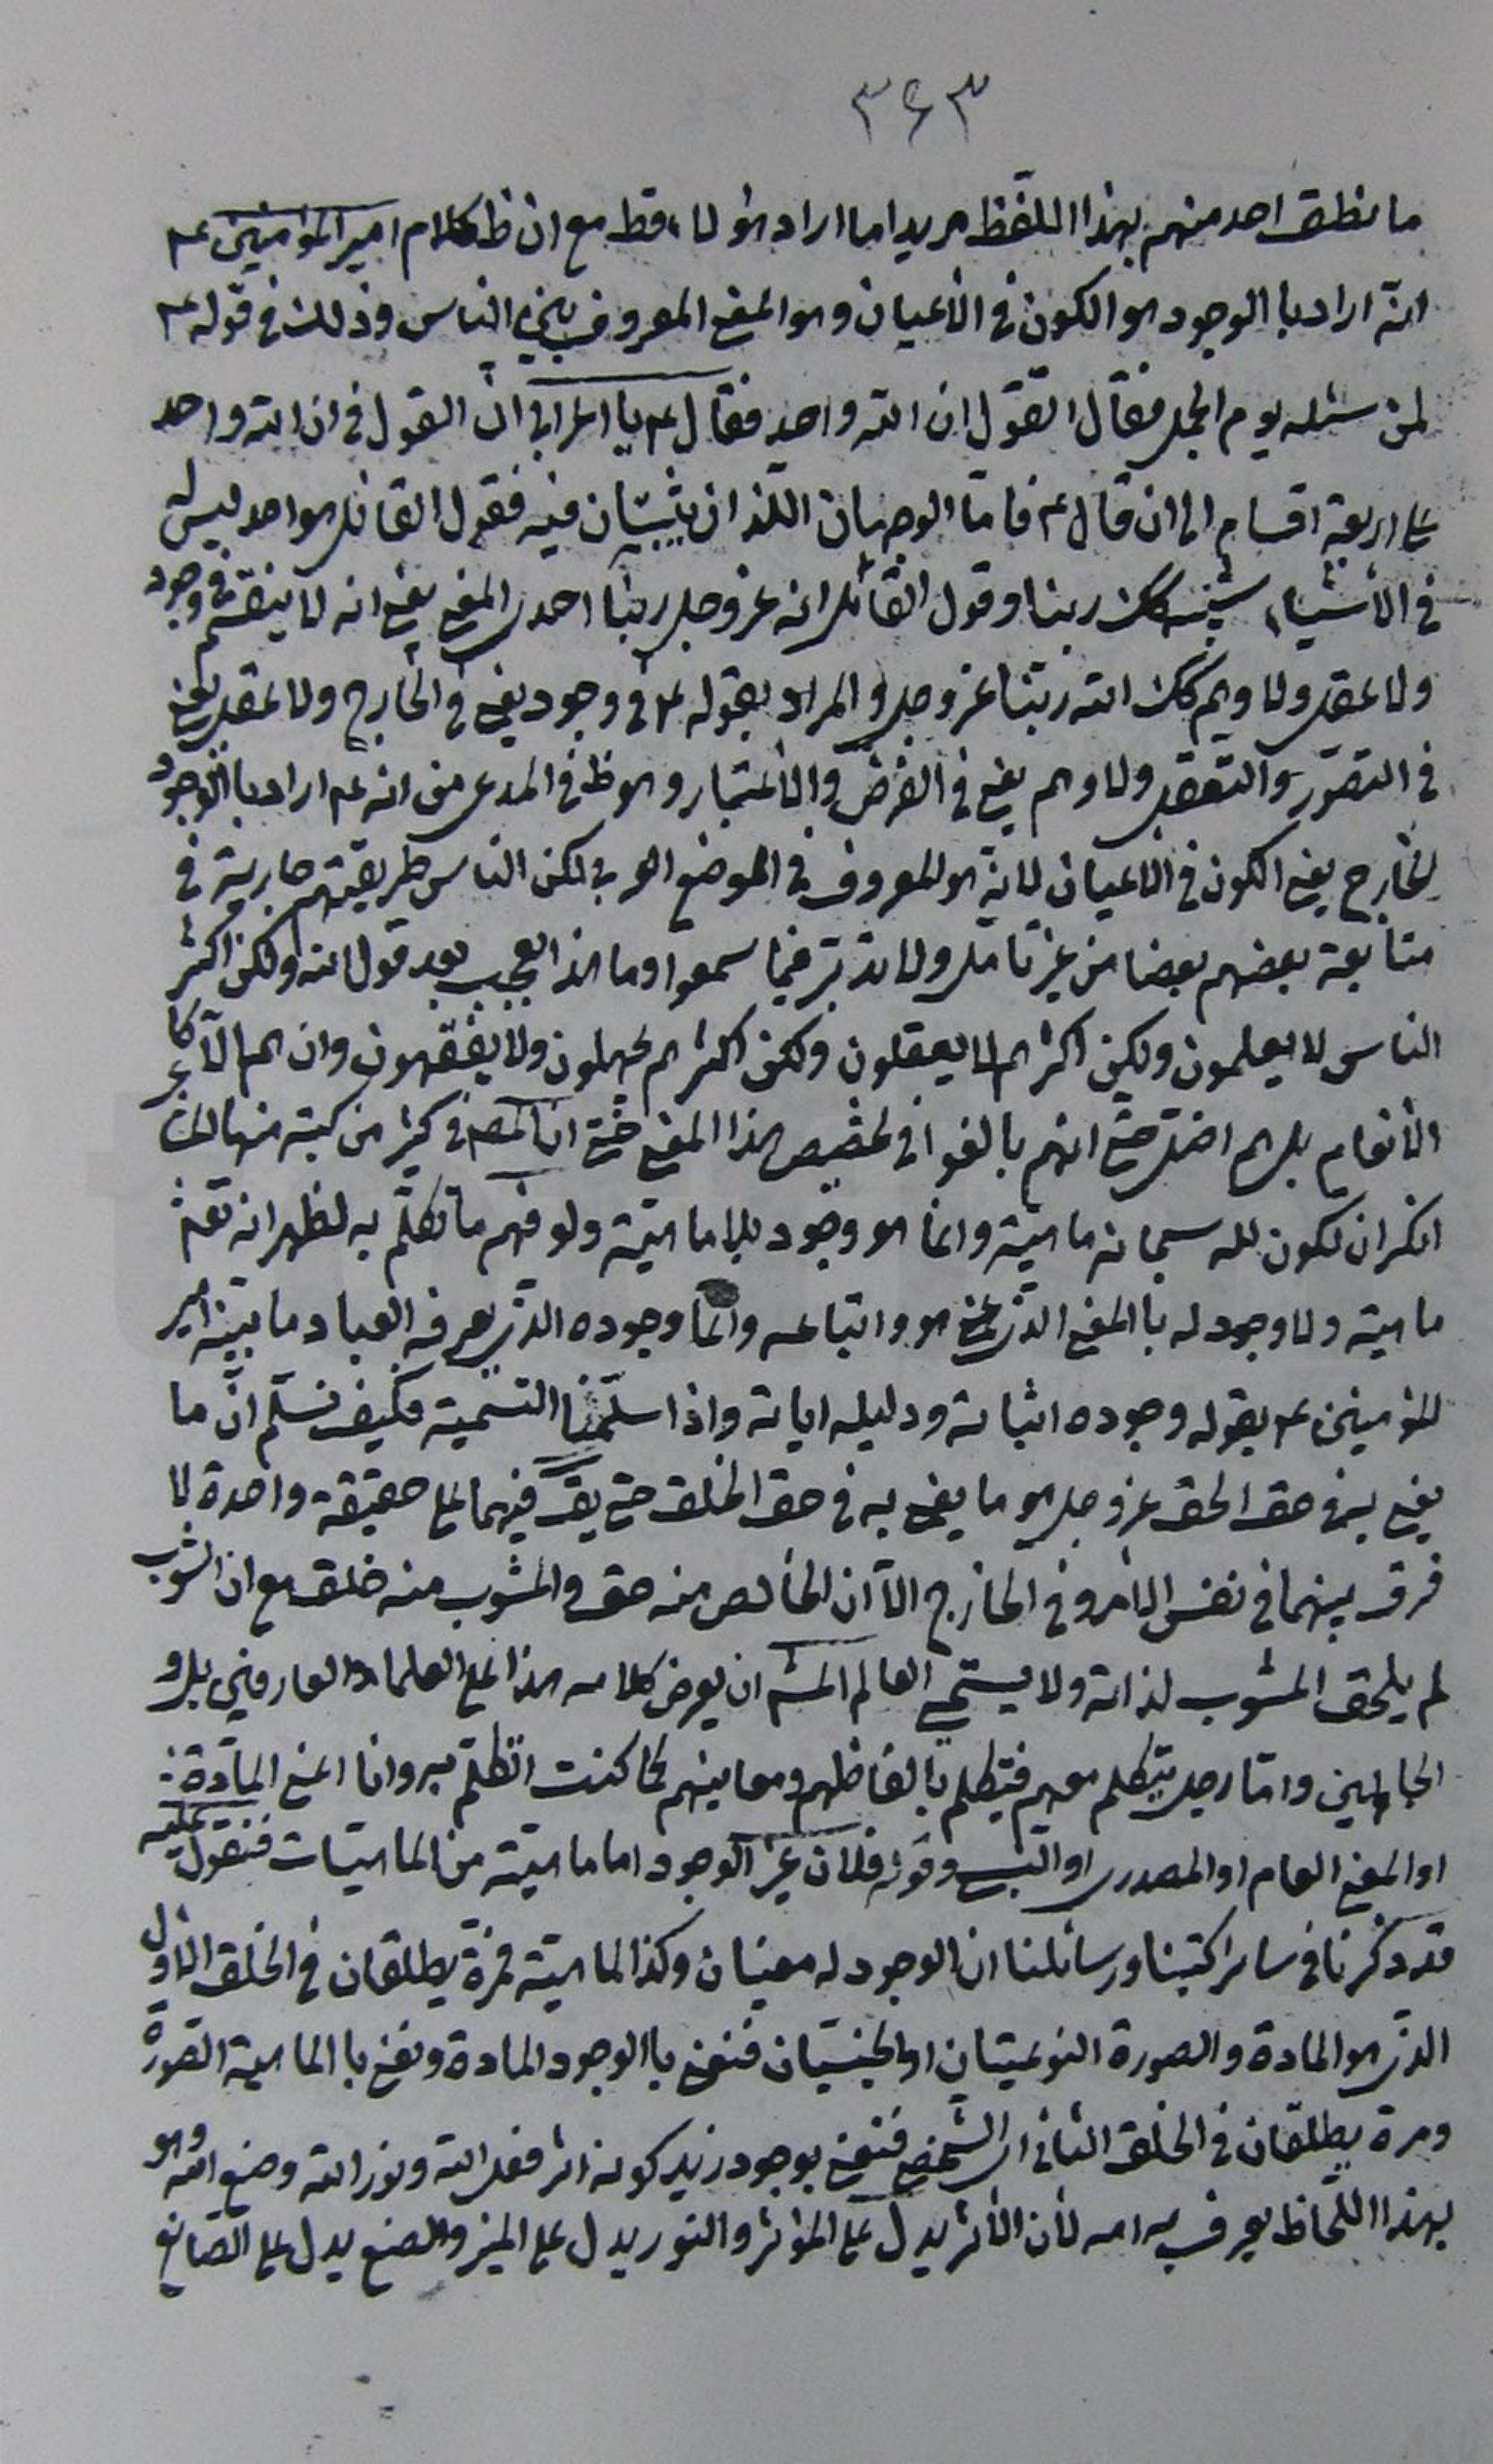 ٣۶٣
ما نطق احد منهم بهذا اللفظ مريدا ما اراد هؤلاء قط مع ان ظ كلام امير المؤمنين ع
انه اراد با الوجود هو الكون فى الأعيان وهو المعنى المعروف بين الناس وذلك فى قوله ع
لمن سئله يوم الجمل فقال اتقول ان الله واحد فقال ع يا اعرابى ان القول فى ان الله واحد
على اربعة اقسام الى ان قال ع فامّا الوجهان اللّذان يثبتان فيه فقول القائل هو واحد ليس له
فى الأشياء شبه كك ربنا وقول القائل انه عز وجل ربنا احدى المعنى يعنى انه لا ينقسم فى وجود
ولا عقل ولا وهم كك الله ربنا عز وجل والمراد بقوله ع فى وجود يعنى فى الخارج ولا عقل يعنى
فى التصوّر والتعقل ولا وهم يعنى فى الفرض والأعتبار وهو ظ فى المدعى من انه ع اراد با الوجود
الخارج يعنى الكون فى الاعيان لانه هو المعروف فى الموضع العربى لكن الناس طريقتهم جارية فى
متابعة بعضهم بعضا من غير تامّل ولا تدبّر فيما سمعوا وما هذا بعجيب بعد قول الله ولكن اكثر
الناس لا يعلمون ولكن اكثرهم لا يعقلون ولكن اكثرهم يجهلون ولا يفقهون وان هم الّا كا
الأنعام بل هم اضل حتى انهم بالغوا فى تخصيص هذا المعنى حتى ان المصـ فى كثير من كتبه منها هنا
انكر ان تكون لله سبحانه ماهيّة وانما هو وجود بلا ماهيّة ولو فهم ما تكلّم به لظهر انه تعـ
ماهيّة ولا وجود له با المعنى الذى عنى هو واتباعه وانما وجوده الذى يعرفه العباد ما بيّنه امير
المؤمنين ع بقوله وجوده اثباته ودليله اياته واذا سلّمنا التسمية فكيف نسلّم انّ ما
يعنى به فى حق الحق عز وجل هو ما يعنى به فى حق الخلق حتى يق فيهما على حقيقة واحدة لا
فرق بينهما فى نفس الأمر وفى الخارج الّا ان الخالص منه حق والمشوب منه خلق مع ان الشوب
لم يلحق المشوب لذاته ولا يستحيى العالم ان يعرض كلامه هذا على العلماء والعارفين بل و
الجاهلين وامّا رجل يتكلم معهم فيتكلم بالفاظهم ومعانيهم كما كنت اتكلّم به وانا اعنى المادّة
او المعنى العام او المصدرى او النسبى وقوله فلان غير الوجود اما ماهيّة من الماهيّات فنقول عليه
قد ذكرنا فى ساير كتبنا ورسائلنا ان الوجود له معنيان وكذا الماهيّة فمرة يطلقان فى الخلق الاوّل
الذى هو المادة والصورة النوعيتان او الجنسيّان فنعنى با الوجود المادة ونعنى با الماهية الصّورة
ومرة يطلقان فى الخلق الثانى اى الشّخصى فنعنى بوجود زيد كونه اثر فعل الله ونور الله وصنع الله وهو
بهذا اللّحاظ يعرف به الله لأن الأثر يدل على المؤثر والنور يدل على المنير والصنع يدل على الصّانع